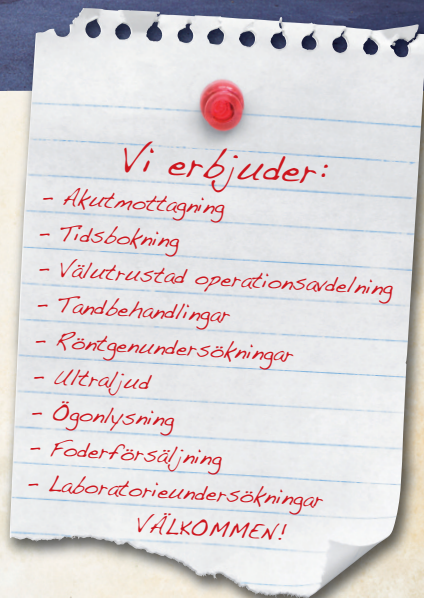 Vi erbjuder:
- Akutmottagning
- Tidsbokning
- Välutrustad operationsavdelning
- Tandbehandlingar
- Röntgenundersökningar
- Ultraljud
- Ögonlysning
- Foderförsäljning
- Laboratorieundersökningar
VÄLKOMMEN!